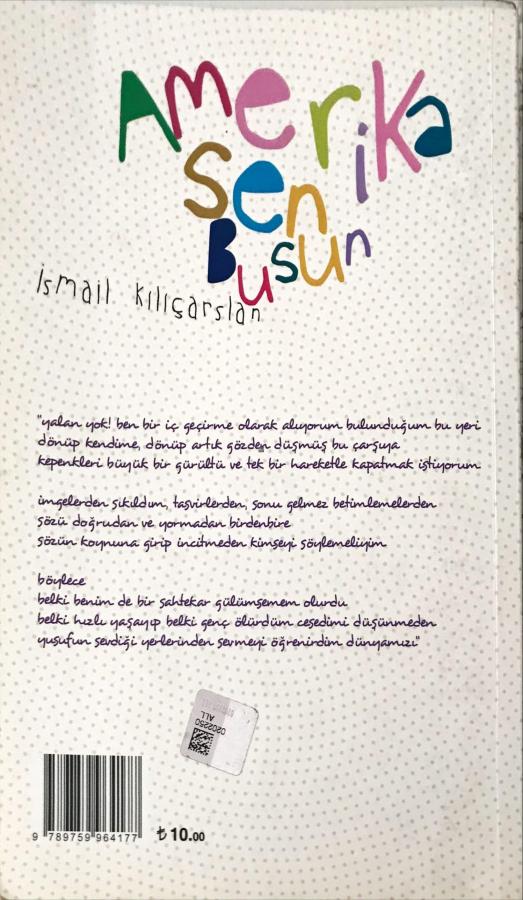 Amerika
Sen
Busun
ismail kılıçarslan
"yalan yok! ben bir iç geçirme olarak alıyorum bulunduğum bu yeri
dönüp kendime, dönüp artık gözden düşmüş bu çarşıya
kepenkleri büyük bir gürültü ve tek bir hareketle kapatmak istiyorum
imgelerden sıkıldım, tasvirlerden, sonu gelmez betimlemelerden
sözü doğrudan ve yormadan birdenbire
sözün koynuna girip incitmeden kimseyi söylemeliyim
böylece
belki benim de bir sahtekar gülümsemem olurdu
belki hızlı yaşayıp belki genç ölürdüm cesedimi düşünmeden
yusufun sevdiği yerlerinden sevmeyi öğrenirdim dünyamızı"
0202250
ALL
9 789759 964177
₺ 10.00